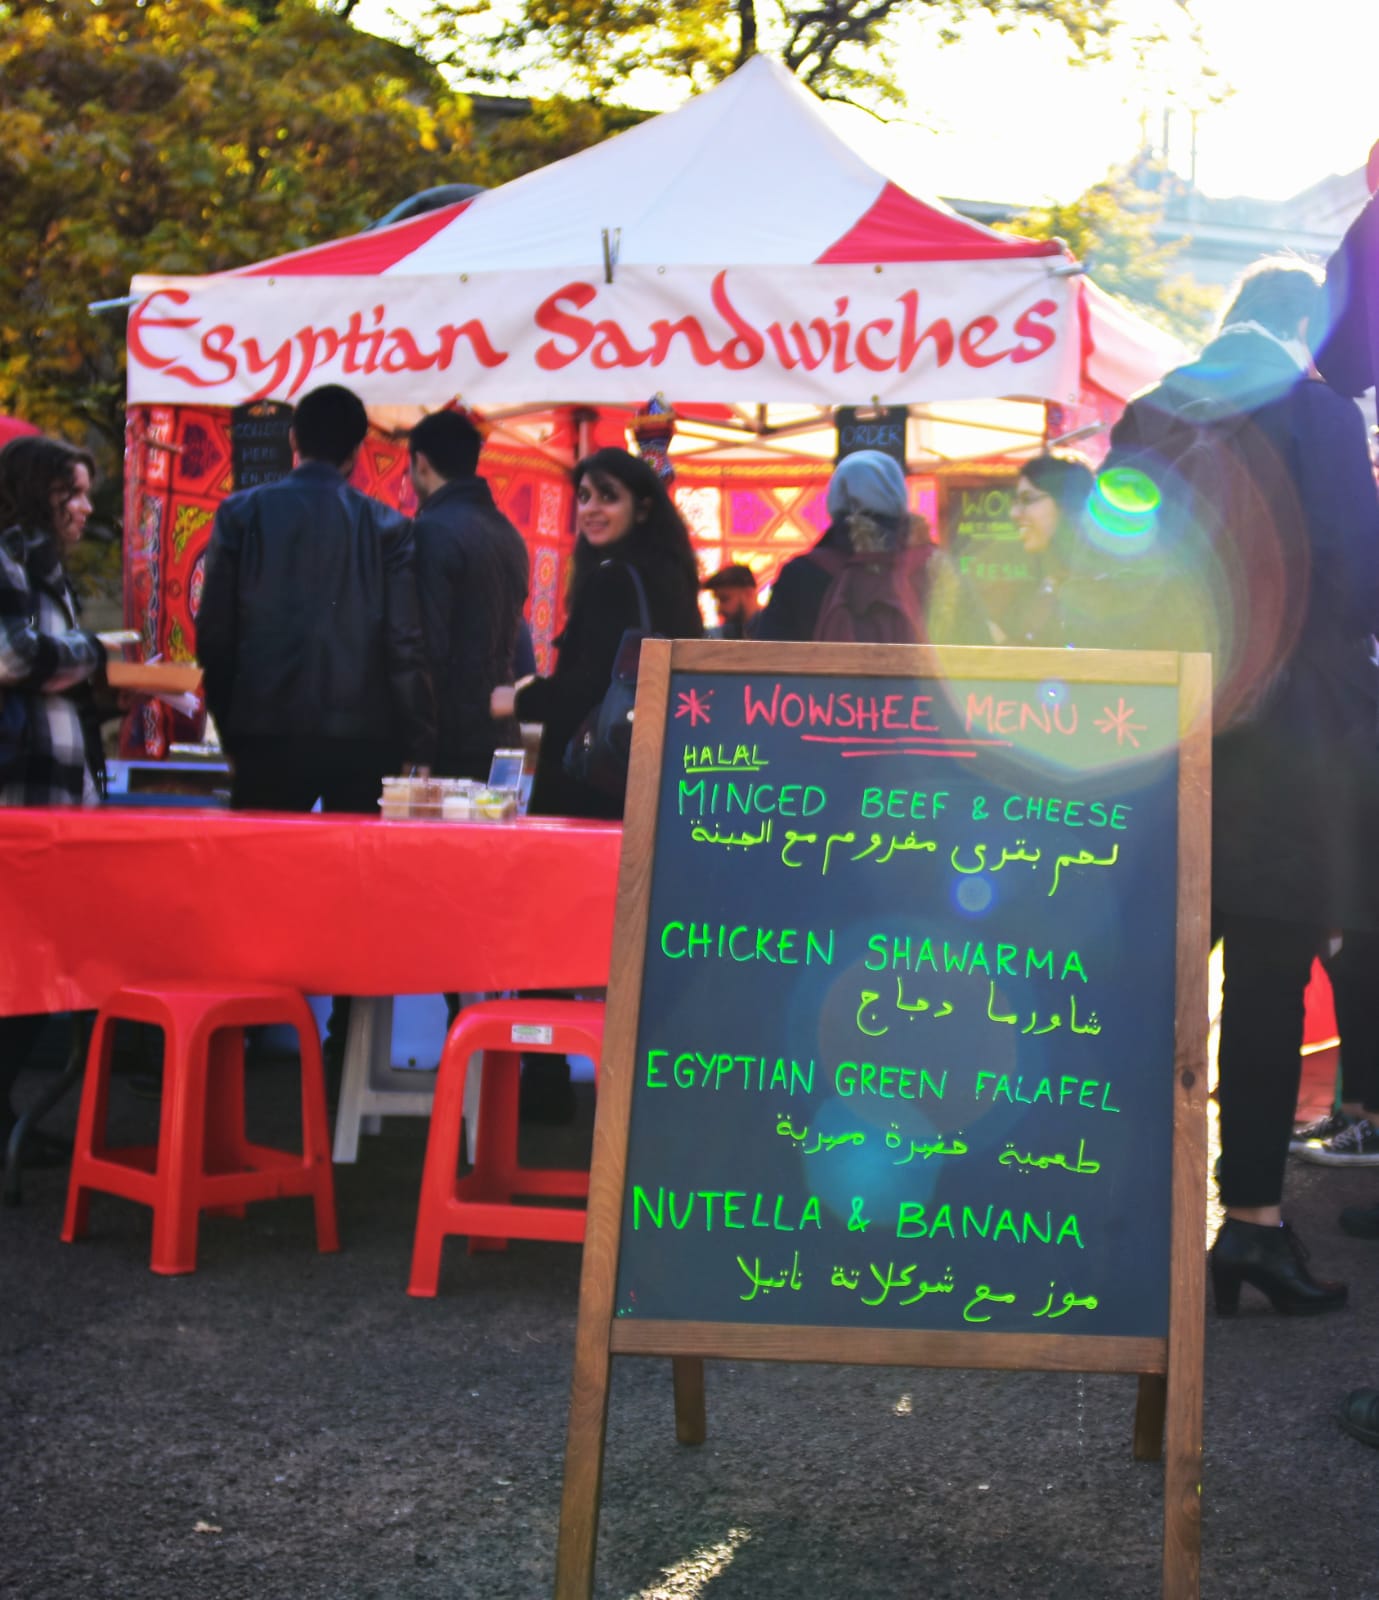 Egyptian Sandwiches
COLLECT
HERE
ENJOY
ORDER
WOW
FRESH
* WOWSHEE MENU *
HALAL
MINCED BEEF & CHEESE
لحم بقرى مفروم مع الجبنة
CHICKEN SHAWARMA
شاورما دجاج
EGYPTIAN GREEN FALAFEL
طعمية خضرة مصرية
NUTELLA & BANANA
موز مع شوكلاتة ناتيلا